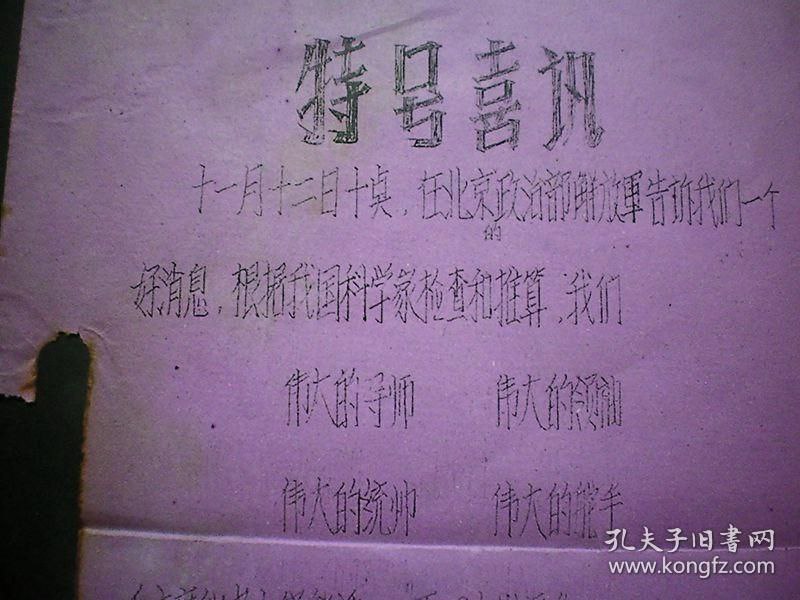 特号喜讯
十一月十二日十点，在北京政治部解放軍告訴我们一个
的
好消息，根据我国科学家检查和推算，我们
伟大的导师 伟大的领袖
伟大的统帅 伟大的舵手
孔夫子旧書网
www.kongfz.com